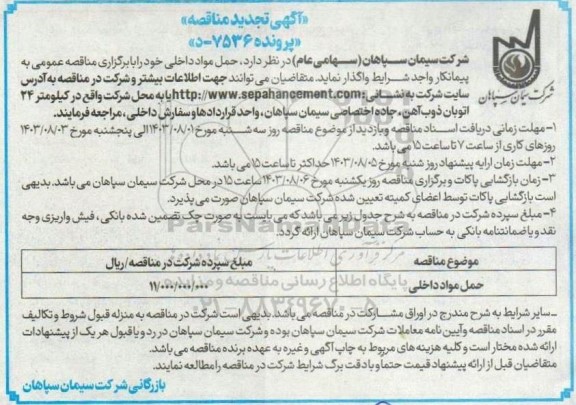 «آگهی تجدید مناقصه»
«پرونده ۷۵۳۶-د»
شرکت سیمان سپاهان
شرکت سیمان سپاهان (سهامی عام) در نظر دارد، حمل مواد داخلی خود را با برگزاری مناقصه عمومی به
پیمانکار واجد شرایط واگذار نماید. متقاضیان می‌توانند جهت اطلاعات بیشتر و شرکت در مناقصه به آدرس
سایت شرکت به نشانی: http://www.sepahancement.com یا به محل شرکت واقع در کیلومتر ۲۴
اتوبان ذوب آهن، جاده اختصاصی سیمان سپاهان، واحد قراردادها و سفارش داخلی، مراجعه فرمایند.
۱- مهلت زمانی دریافت اسناد مناقصه و بازدید از موضوع مناقصه روز سه شنبه مورخ ۱۴۰۳/۰۸/۰۱ الی پنجشنبه مورخ ۱۴۰۳/۰۸/۰۳
روزهای کاری از ساعت ۷ تا ساعت ۱۵ می باشد.
۲- مهلت زمان ارایه پیشنهاد روز شنبه مورخ ۱۴۰۳/۰۸/۰۵ حداکثر تا ساعت ۱۵ می باشد.
۳- زمان بازگشایی پاکات و برگزاری مناقصه روز یکشنبه مورخ ۱۴۰۳/۰۸/۰۶ ساعت ۱۵ در محل شرکت سیمان سپاهان می باشد. بدیهی
است بازگشایی پاکات توسط اعضای کمیته تعیین شده شرکت سیمان سپاهان صورت می پذیرد.
۴- مبلغ سپرده شرکت در مناقصه به شرح جدول زیر می باشد که می بایست به صورت چک تضمین شده بانکی، فیش واریزی وجه
نقد و یا ضمانتنامه بانکی به حساب شرکت سیمان سپاهان ارائه گردد.
ParsNamadData
مرکز فرآوری اطلاعات پارس نماد داده ها
موضوع مناقصه مبلغ سپرده شرکت در مناقصه/ریال
حمل مواد داخلی ۱۱/۰۰۰/۰۰۰/۰۰۰
پایگاه اطلاع رسانی مناقصه و مزایده
۰۲۱-۸۸۳۴۹۶۷۰-۵
ـ سایر شرایط به شرح مندرج در اوراق مشارکت در مناقصه می باشد. بدیهی است شرکت در مناقصه به منزله قبول شروط و تکالیف
مقرر در اسناد مناقصه و آیین نامه معاملات شرکت سیمان سپاهان بوده و شرکت سیمان سپاهان در رد و یا قبول هر یک از پیشنهادات
ارائه شده مختار است و کلیه هزینه های مربوط به چاپ آگهی و غیره به عهده برنده مناقصه می باشد.
متقاضیان قبل از ارائه پیشنهاد قیمت حتما و با دقت برگ شرایط شرکت در مناقصه را مطالعه نمایند.
بازرگانی شرکت سیمان سپاهان